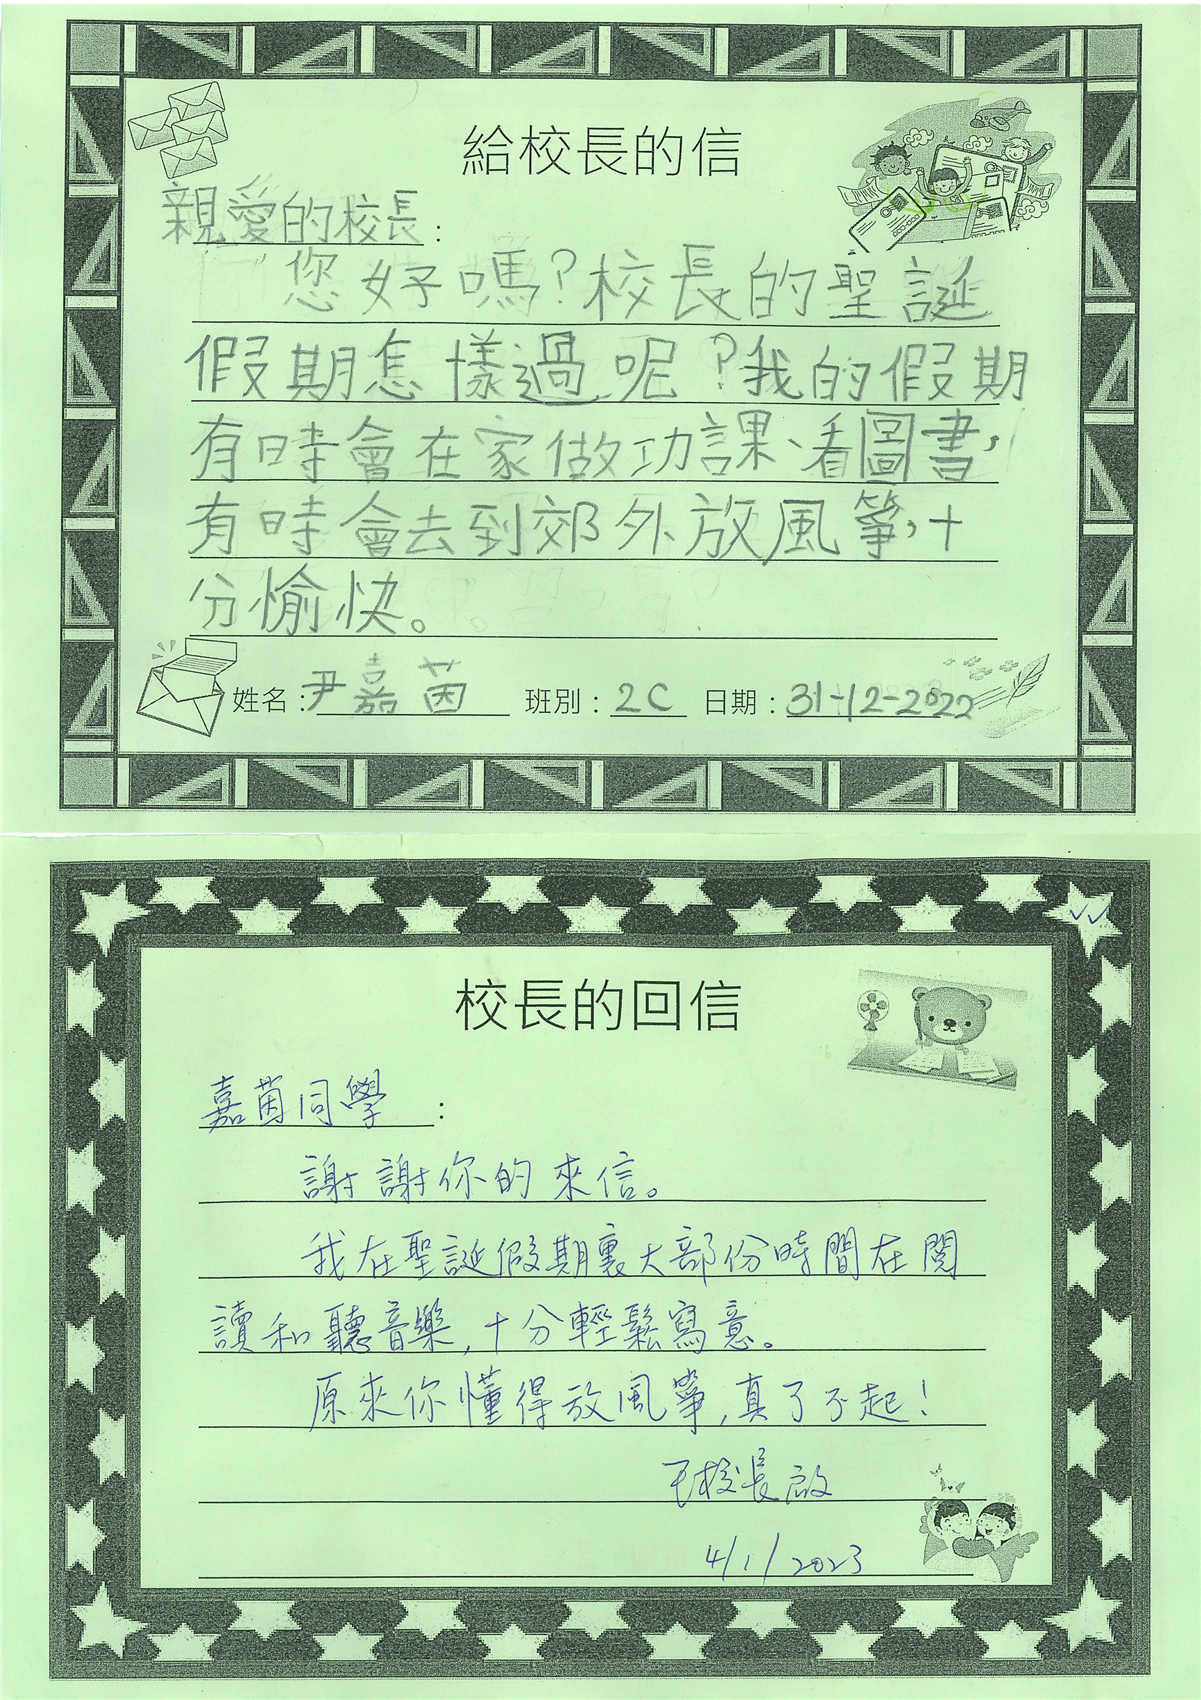 給校長的信
親愛的校長：
您好嗎？校長的聖誕
假期怎樣過呢？我的假期
有時會在家做功課、看圖書，
有時會去到郊外放風箏，十
分愉快。
姓名：尹嘉茵 班別：2C 日期：31-12-2022
校長的回信
嘉茵同學：
謝謝你的來信。
我在聖誕假期裏大部份時間在閱
讀和聽音樂，十分輕鬆寫意。
原來你懂得放風箏，真了不起！
王校長啟
4/1/2023